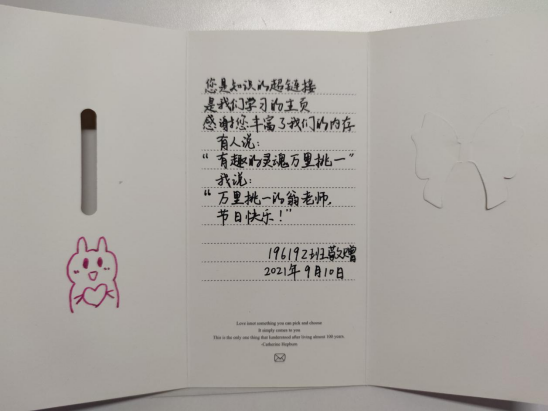 您是知识的超链接
是我们学习的主页
感谢您丰富了我们的内存
有人说：
“有趣的灵魂万里挑一”
我说：
“万里挑一的翁老师，
节日快乐！”
196192班敬赠
2021年9月10日
Love isn't something you can pick and choose.
It simply comes to you.
This is the only one thing that I understand after living almost 100 years.
-Catherine Hepburn